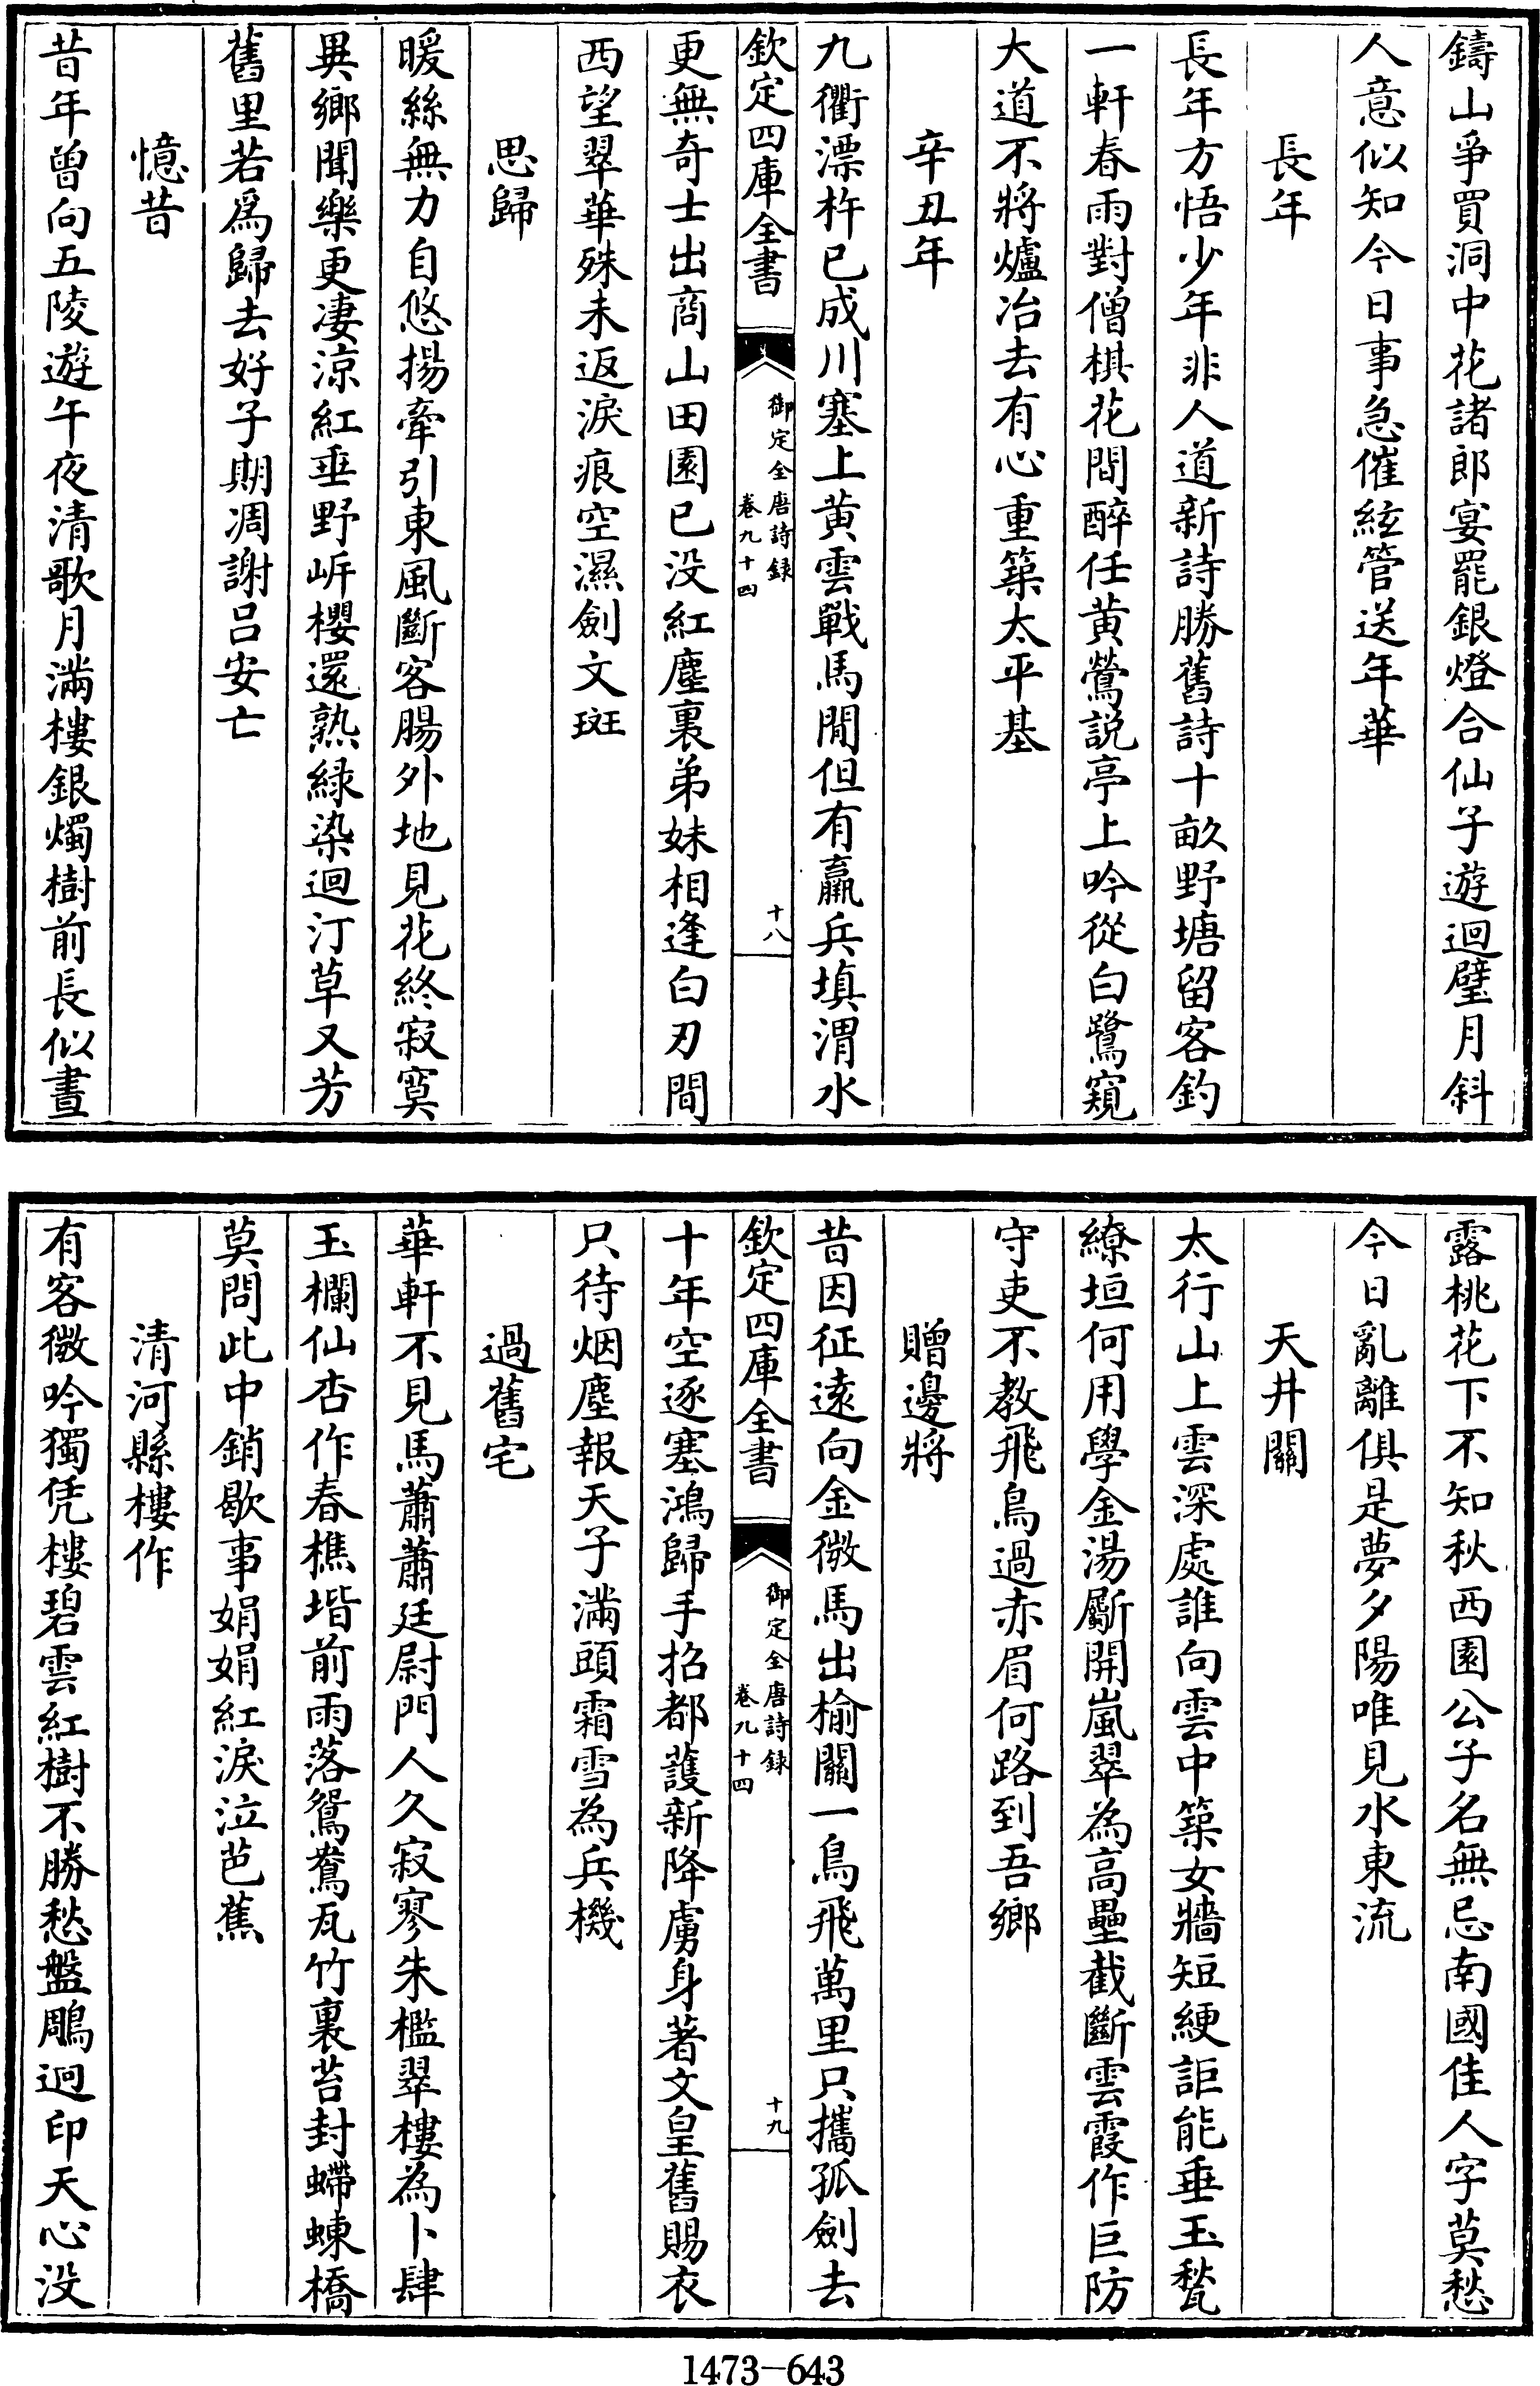 鑄山爭買洞中花諸郎宴罷銀燈合仙子遊迴璧月斜
人意似知今日事急催絃管送年華
長年
長年方悟少年非人道新詩勝舊詩十畝野塘留客釣
一軒春雨對僧棋花間醉任黄鶯説亭上吟從白鷺窺
大道不將爐冶去有心重築太平基
辛丑年
九衢漂杵已成川塞上黄雲戰馬閒但有羸兵填渭水
欽定四庫全書
御定全唐詩録
卷九十四
十八
更無奇士出商山田園已没紅塵裏弟妹相逢白刃間
西望翠華殊未返淚痕空濕劍文斑
思歸
暖絲無力自悠揚牽引東風斷客腸外地見花終寂寞
異鄉聞樂更凄涼紅垂野㟁櫻還熟緑染迴汀草又芳
舊里若爲歸去好子期凋謝吕安亡
憶昔
昔年曾向五陵遊午夜清歌月滿樓銀燭樹前長似晝
露桃花下不知秋西園公子名無忌南國佳人字莫愁
今日亂離俱是夢夕陽唯見水東流
天井關
太行山上雲深處誰向雲中築女牆短綆詎能垂玉甃
繚垣何用學金湯斸開嵐翠為高壘截斷雲霞作巨防
守吏不教飛鳥過赤眉何路到吾鄉
贈邊將
昔因征逺向金微馬出榆關一鳥飛萬里只攜孤劍去
欽定四庫全書
御定全唐詩録
卷九十四
十九
十年空逐塞鴻歸手招都護新降虜身著文皇舊賜衣
只待烟塵報天子滿頭霜雪為兵機
過舊宅
華軒不見馬蕭蕭廷尉門人久寂寥朱檻翠樓為卜肆
玉欄仙杏作春樵堦前雨落鴛鴦瓦竹裏苔封螮蝀橋
莫問此中銷歇事娟娟紅淚泣芭蕉
清河縣樓作
有客微吟獨凭樓碧雲紅樹不勝愁盤鵰迥印天心没
1473-643